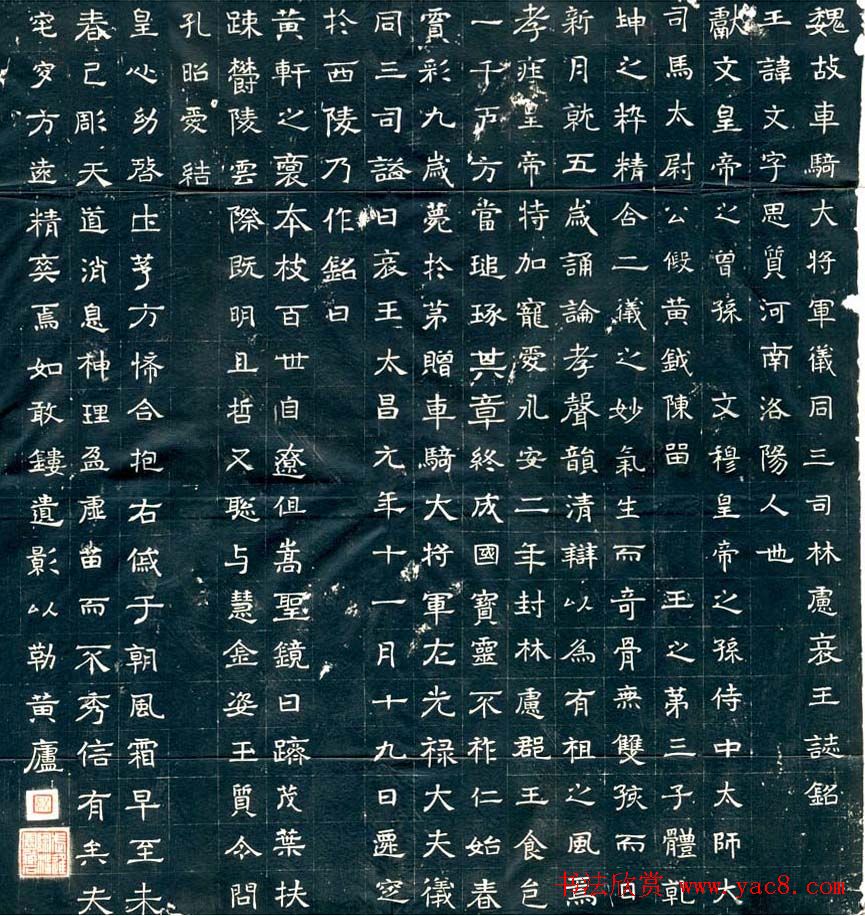 魏故車騎大将軍儀同三司林慮哀王誌銘
王諱文字思質河南洛陽人也
獻文皇帝之曾孫 文穆皇帝之孫侍中太師大
司馬太尉公假黄鉞陳留 王之第三子體乾
坤之粋精合二儀之妙氣生而奇骨無雙孩而日
新月就五歳誦論孝聲韻清辯以為有祖之風焉
孝莊皇帝特加寵愛永安二年封林慮郡王食邑
一千戸方當琢其章終成國寶靈不祚仁始春
賓彩九歳薨於茅贈車騎大将軍左光禄大夫儀
同三司謚曰哀王太昌元年十一月十九日遷窆
於西陵乃作銘曰
黄軒之裔本枝百世自遼徂嵩聖鏡日躋茂葉扶
踈欝陵雲際既明且哲又聡与慧金姿玉質令問
孔昭愛結
皇心幼啓茅方悕合抱右戚于朝風霜早至未
春已彫天道消息神理盈虚苗而不秀信有矣夫
窀穸方遠精爽焉如敢鏤遺影以勒黄廬
书法欣赏 www.yac8.com